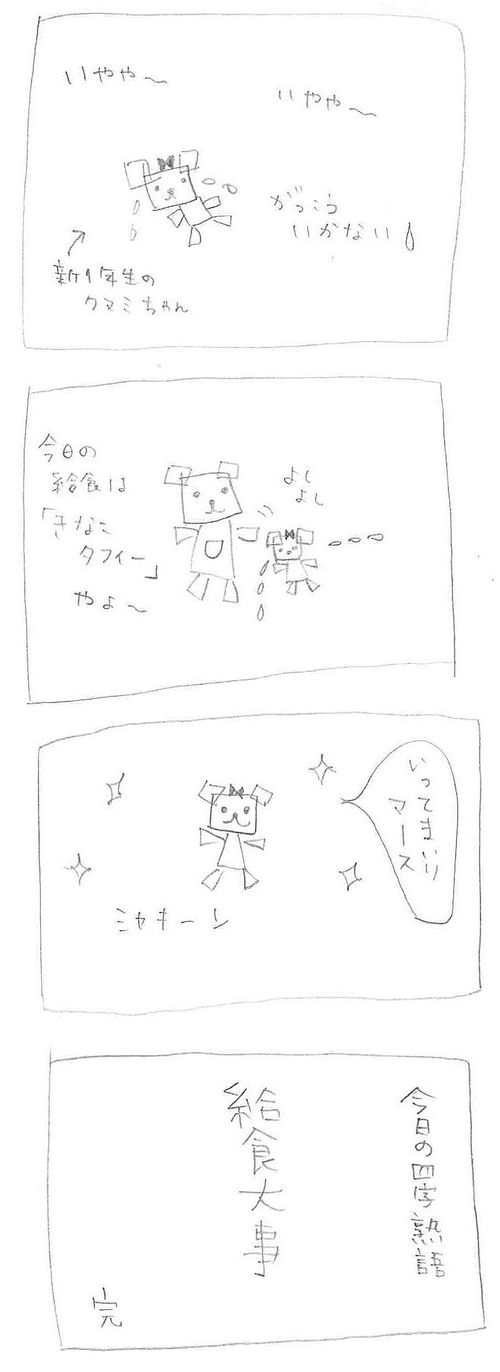 いやや〜
いやや〜
がっこう
いかない
新1年生の
クマミちゃん
今日の
給食は
「きなこ
タフィー」
やよ〜
よし
よし
いってまいり
マース
シャキーン
今日の四字熟語
給食大事
完